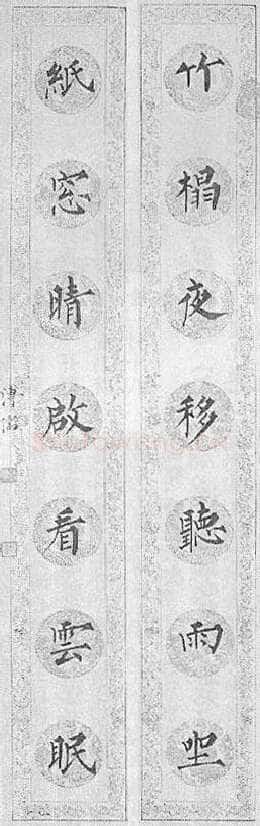 竹榻夜移聽雨坐
紙窓晴啟看雲眠
溥㳄